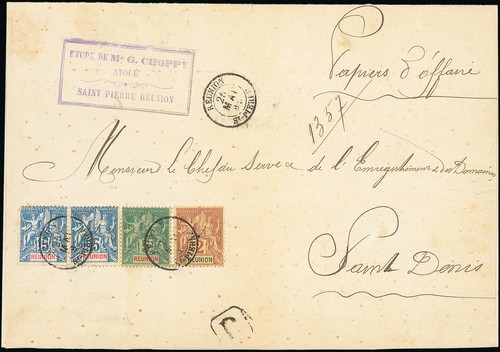 ETUDE DE Me G. CHOPPY
AVOUÉ
SAINT PIERRE RÉUNION
RÉUNION
25
MAI
ST-PIERRE
Papiers d'affaire
1357
Monsieur le Chef du Service de l'Enregistrement & des Domaines
Saint Denis
15
RÉUNION
15
RÉUNION
RÉUNION
2
RÉUNION
R